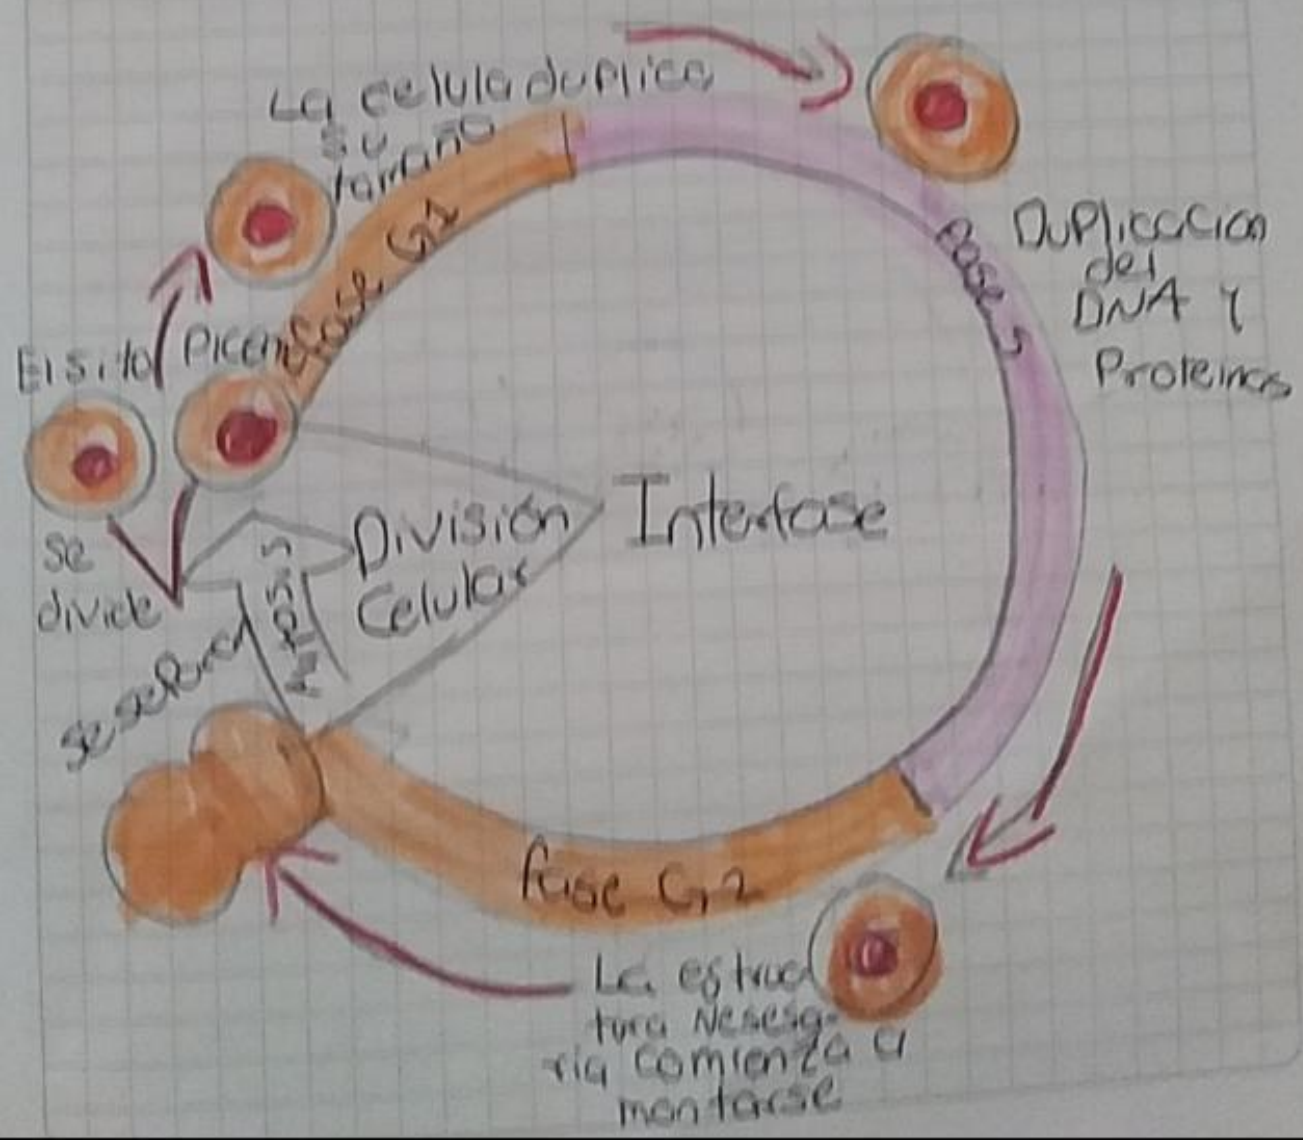 La celula duplica
su
tamaño
fase G1
fase S
Duplicacion
del
DNA Y
Proteinas
El sito
se
divide
se separa
Mitosis
División
Celular
Interfase
fase G2
La estruc
tura Nesesa-
ria comienza a
montarse